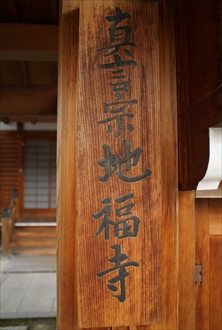 真言宗地福寺